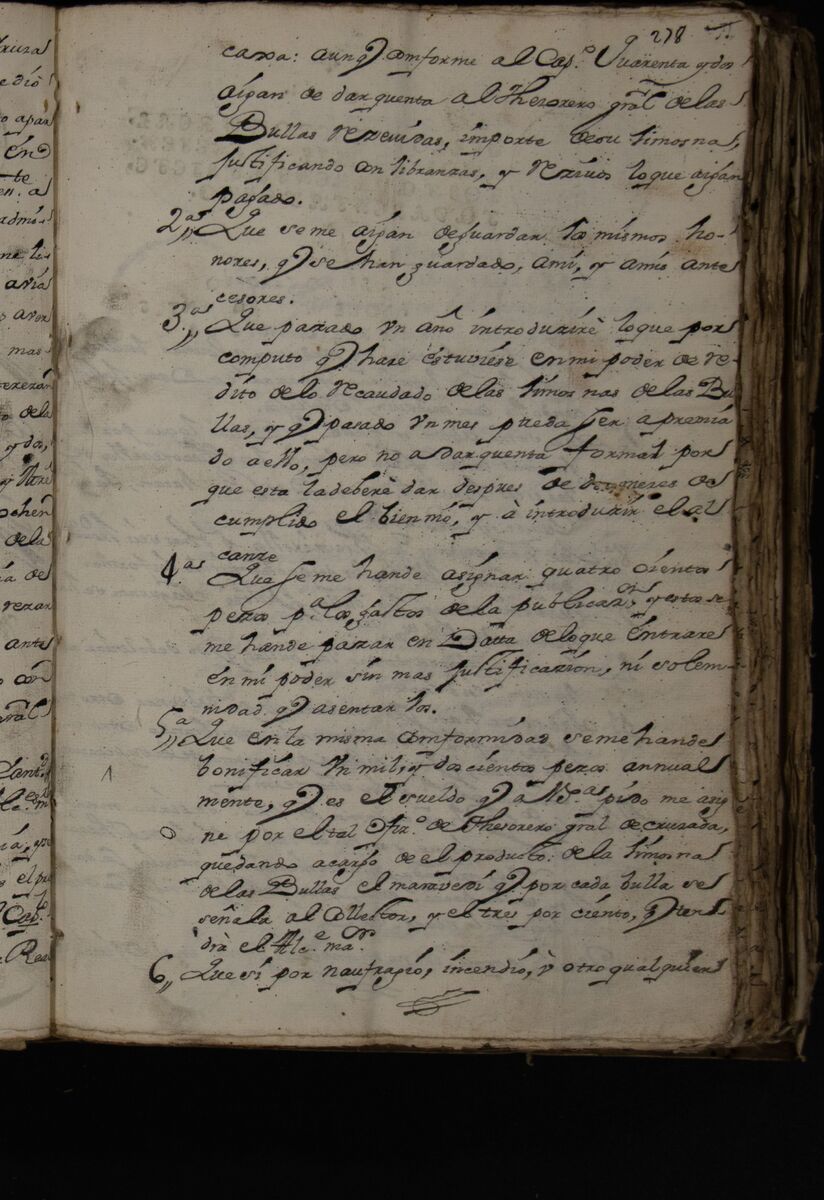 278
caxa: aunq conforme al Cap.º Quarenta y dos
aigan de dar quenta al Thesorero gral de las
Bullas rezevidas, importe de su limosna,
justificando con libranzas, y rezivos lo que aigan
pagado.
2.as Que se me aigan de guardar los mismos ho-
nores, q se han guardado, ami, y amis ante
cesores.
3.as Que pasado vn año introduzirè lo que por
computo q harè estuviese en mi poder de re-
dito de lo recaudado de las limosnas de las Bu
llas, y q pasado vn mes pueda ser apremia
do a ello, pero no a dar quenta formal por
que esta la deberè dar despues de dos meses de
cumplido el bienio, y à introduzir el al
canze
4.as Que se me han de asignar quatro cientos
pesos p.a los gastos de la publicaz.on y estos se
me han de pasar en Datta de lo que entrare
en mi poder sin mas justificazion, ni solem-
nidad q asentarlos.
5.a Que en la misma conformidad se me han de
bonificar vn mil, y dos cientos pesos annual
mente, q es el sueldo q a V.S.as pido me asig
ne por el tal Ofiz.º de Thesorero gral de cruzada,
quedando a cargo de el producto de la limosna
de las Bullas el maravedi q por cada bulla se
señala al Collector, y el tres por ciento, q ten
drà el Alc.e ma.or
6,, Que si por naufragio, incendio, ù otro qualquier